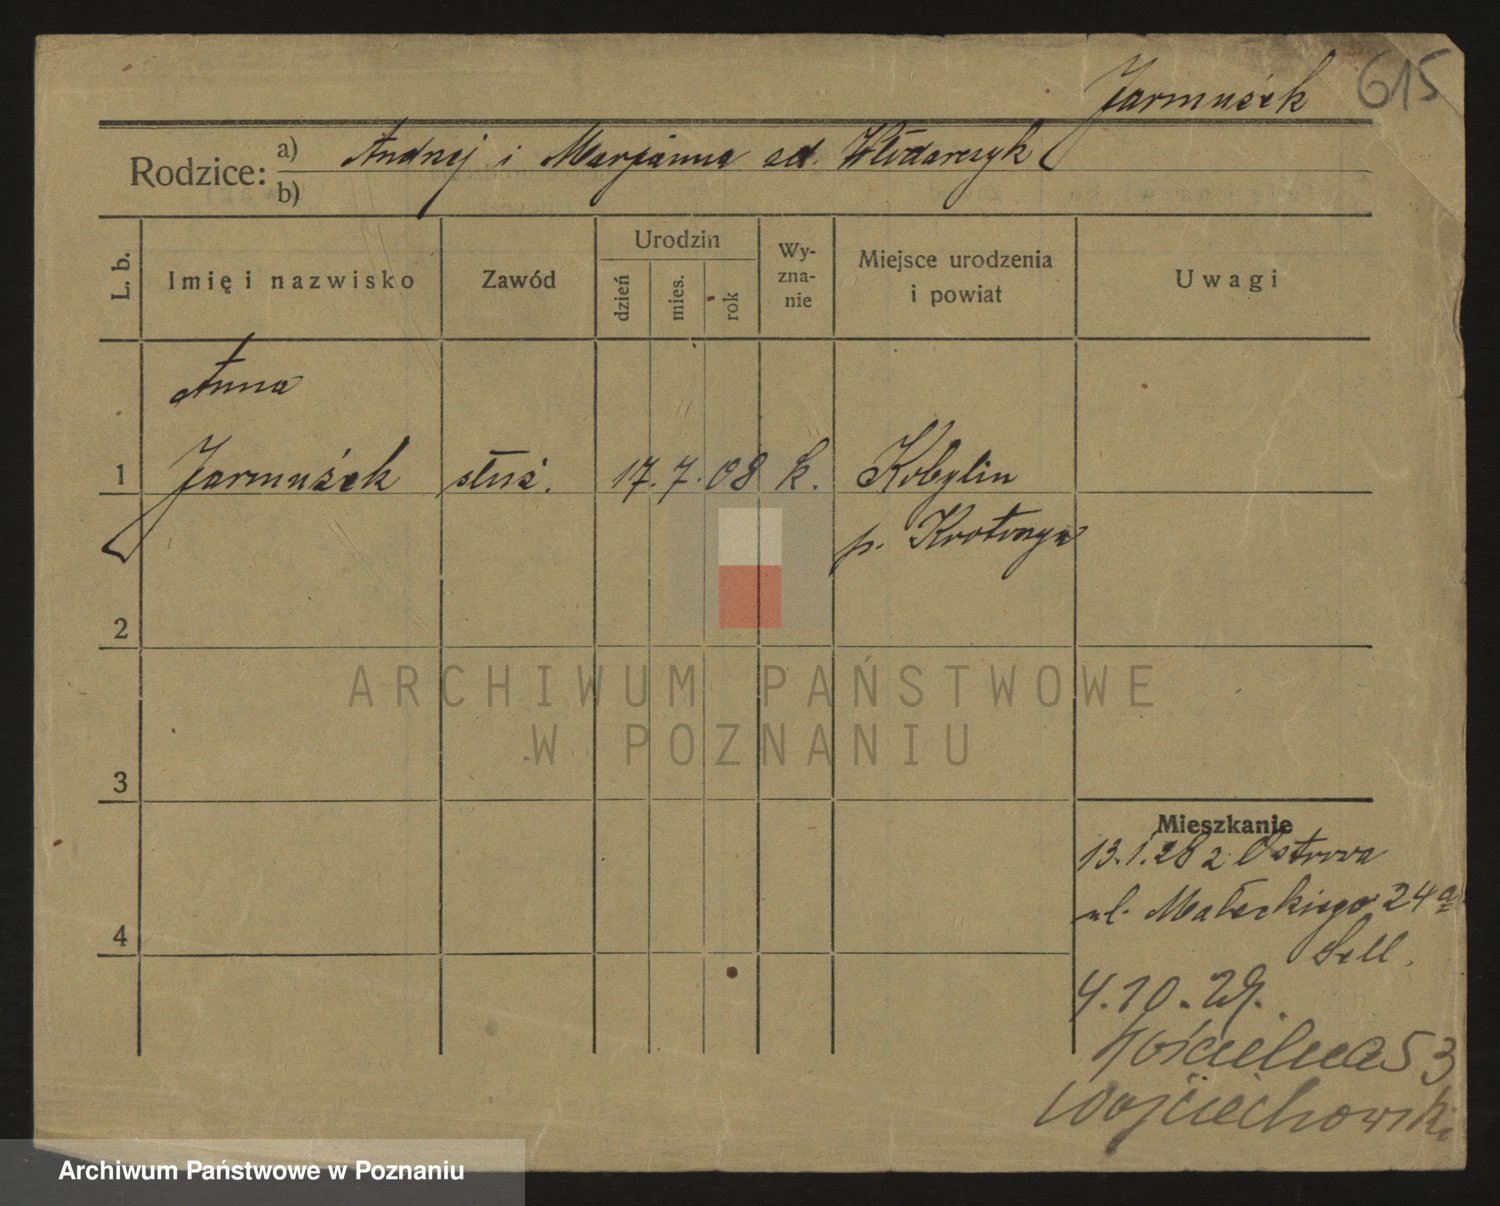 615
Jarmużek
Rodzice:
a) Andrzej i Marjanna zd. Włodarczyk
b)
L. b.
Imię i nazwisko
Zawód
Urodzin
dzień
mies.
rok
Wy-
zna-
nie
Miejsce urodzenia
i powiat
Uwagi
Anna
1 Jarmużek służ. 17. 7. 08 k. Kobylin
p. Krotoszyn
2
3
4
Mieszkanie
13.1.28 z Ostrowa
ul. Małeckiego 24a
Sell.
4.10.29.
Kościelna 53
Wojciechowski
ARCHIWUM PAŃSTWOWE
W POZNANIU
Archiwum Państwowe w Poznaniu